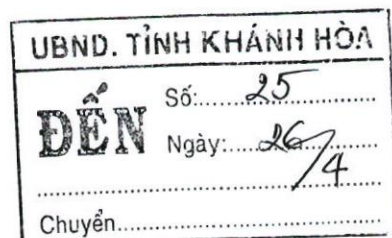 UBND. TỈNH KHÁNH HÒA
ĐẾN
Số:.......25..................
Ngày:.....26/4.............
Chuyển.......................................